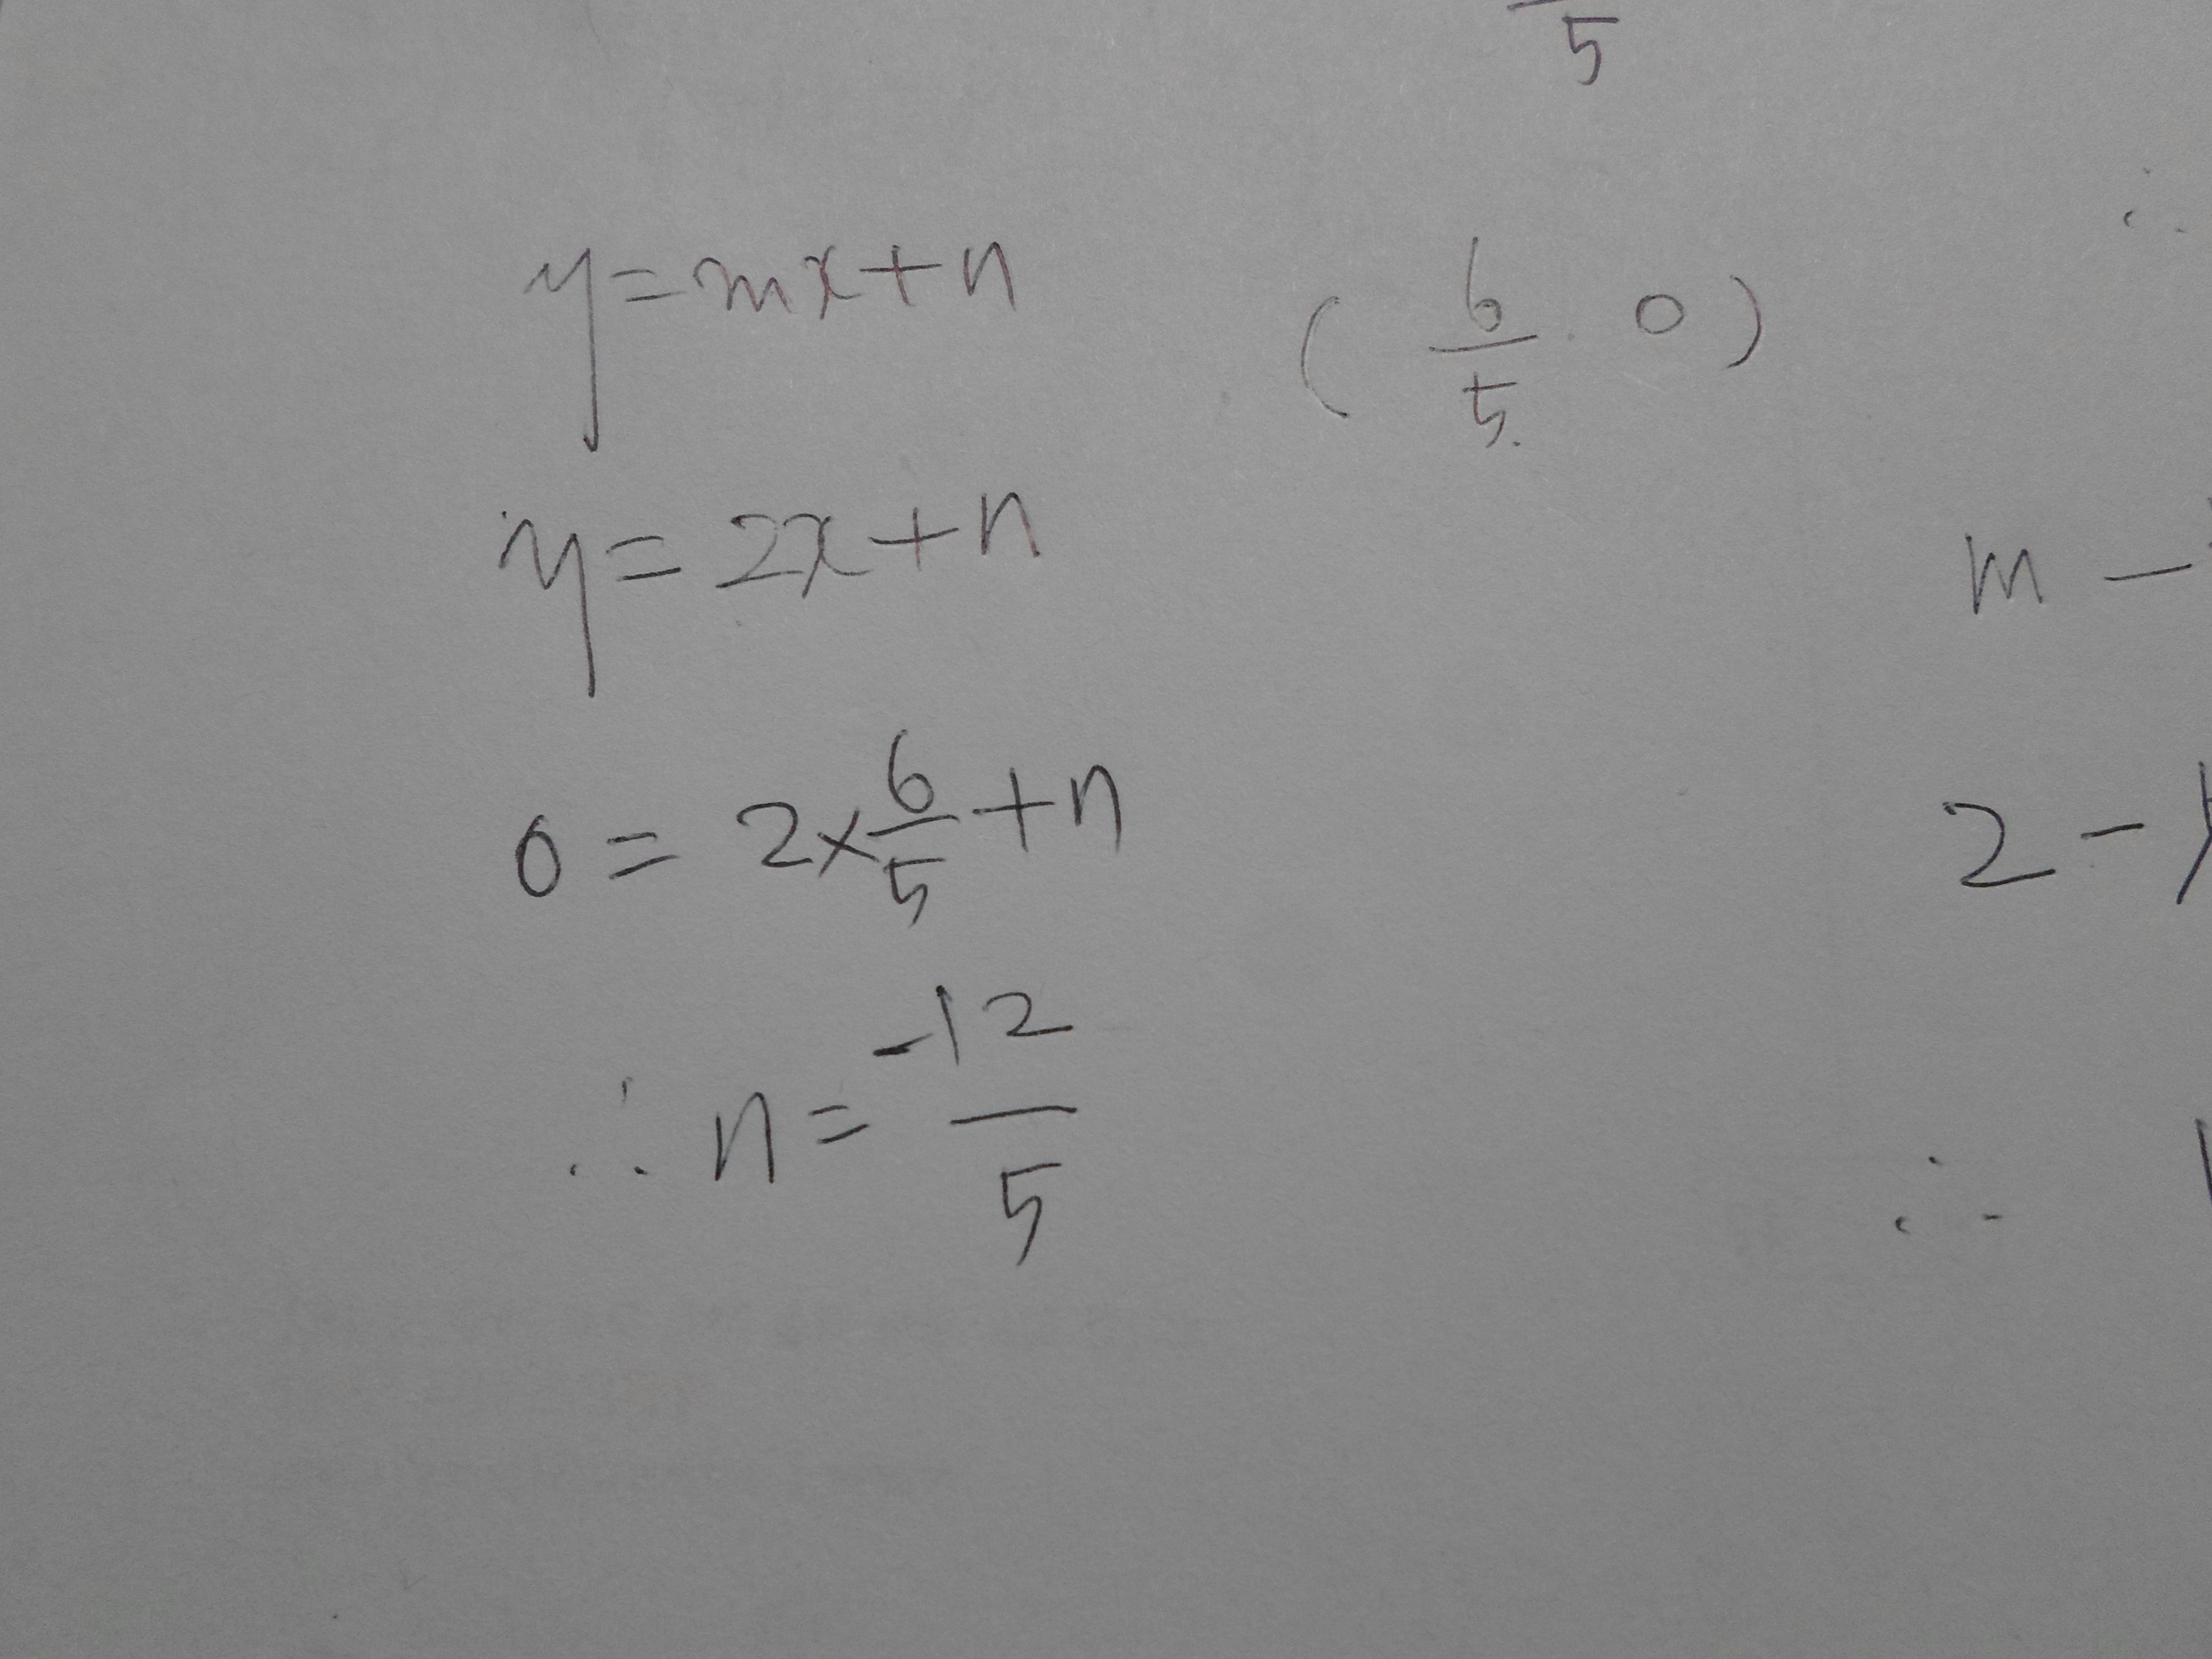 5
y=mx+n (6/5. 0)
∴
y=2x+n
m-
0=2×6/5+n
2-
∴ n=-12/5
∴